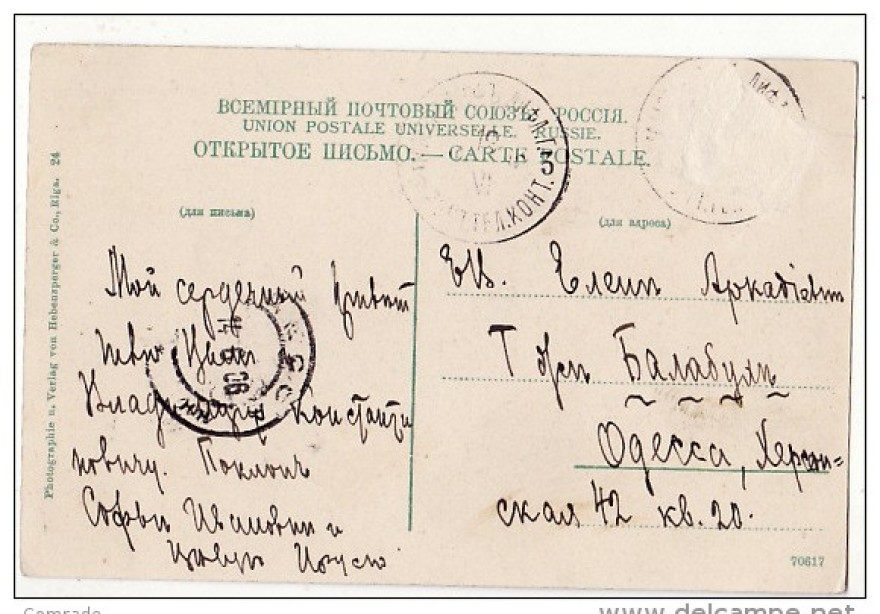 ВСЕМІРНЫЙ ПОЧТОВЫЙ СОЮЗЪ. РОССІЯ.
UNION POSTALE UNIVERSELLE. RUSSIE.
ОТКРЫТОЕ ПИСЬМО. — CARTE POSTALE.
(для письма)
(для адреса)
Photographie u. Verlag von Hebensperger & Co., Riga. 24
Мой сердечный
Владиміру Константи
новичу. Поклонъ
Софьѣ Ивановнѣ и
ЕВ. Еленѣ Аркадіевнѣ
Балабухѣ
Одесса, Херсон=
ская 42 кв. 20.
70617
Comrade
www.delcampe.net